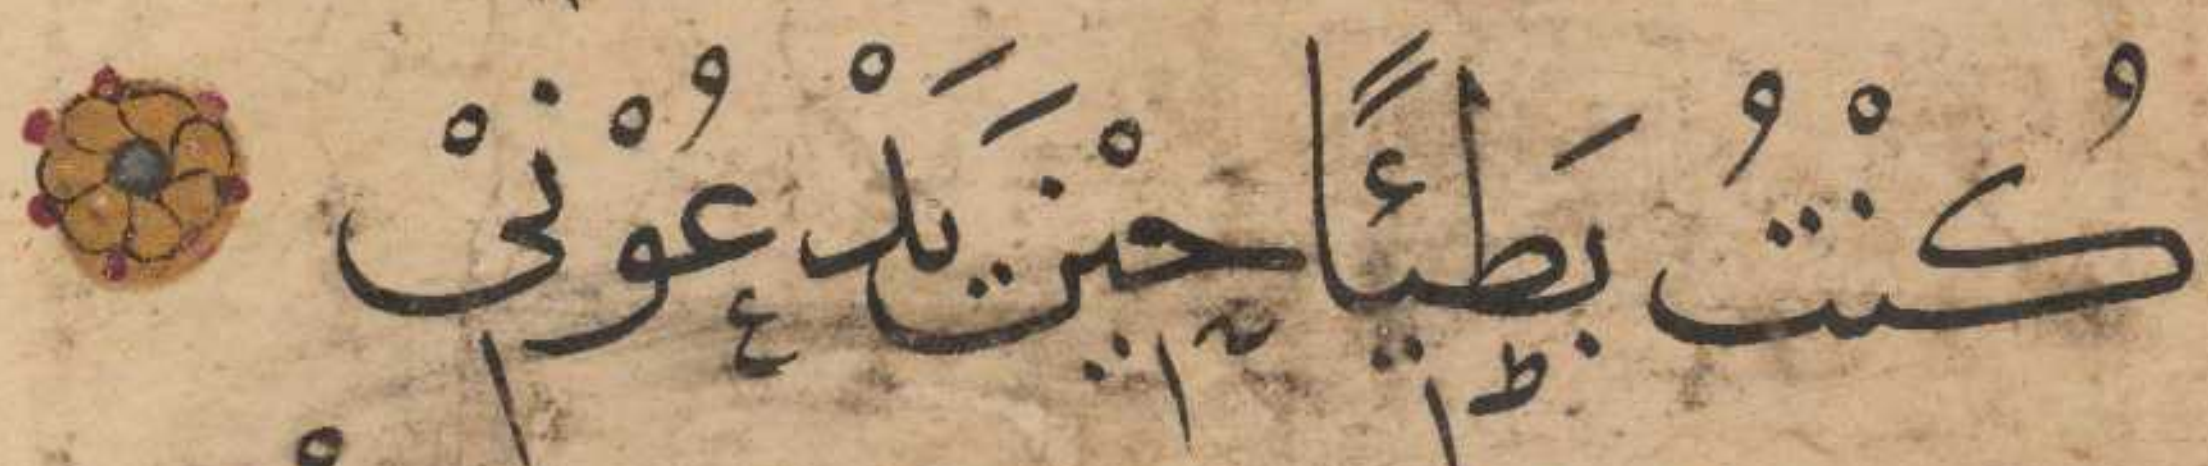 كُنْتُ بَطِيْئًا حِيْنَ يَدْعُوْنِيْ